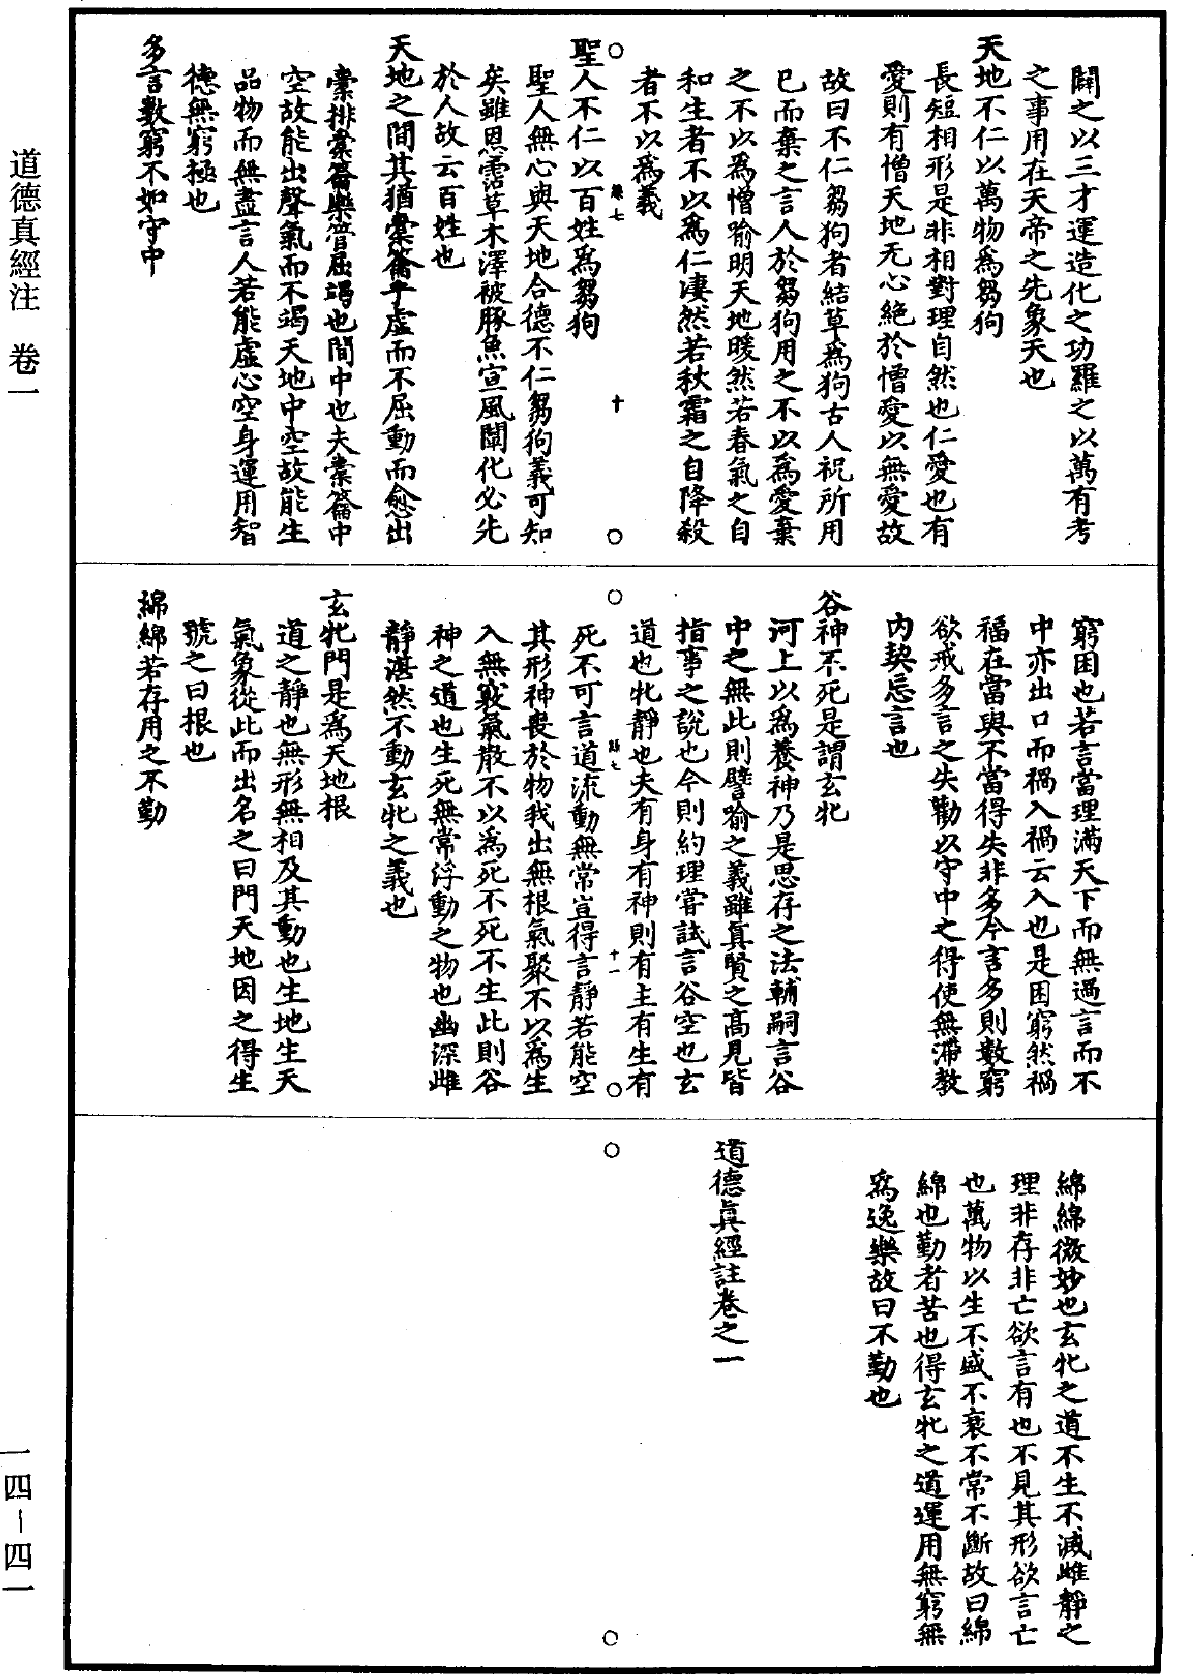 闢之以三才運造化之功羅之以萬有考
之事用在天帝之先象天也
天地不仁以萬物為芻狗
長短相形是非相對理自然也仁愛也有
愛則有憎天地无心絶於憎愛以無愛故
故曰不仁芻狗者結草為狗古人祝所用
已而棄之言人於芻狗用之不以為愛棄
之不以為憎喻明天地暖然若春氣之自
和生者不以為仁凄然若秋霜之自降殺
者不以為義
十
聖人不仁以百姓為芻狗
聖人無心與天地合德不仁芻狗義可知
矣雖恩霑草木澤被豚魚宣風闡化必先
於人故云百姓也
天地之間其猶橐籥乎虛而不屈動而愈出
橐排橐籥樂管屈竭也間中也夫橐籥中
空故能出聲氣而不竭天地中空故能生
品物而無盡言人若能虛心空身運用智
德無窮極也
多言數窮不如守中
窮困也若言當理滿天下而無過言而不
中亦出口而禍入禍云入也是困窮然禍
福在當與不當得失非多今言多則數窮
欲戒多言之失勸以守中之得使無滯教
內契忘言也
谷神不死是謂玄牝
河上以為養神乃是思存之法輔嗣言谷
中之無此則譬喻之義雖真賢之高見皆
指事之說也今則約理嘗試言谷空也玄
道也牝靜也夫有身有神則有主有生有
十一
死不可言道流動無常豈得言靜若能空
其形神喪於物我出無根氣聚不以為生
入無竅氣散不以為死不死不生此則谷
神之道也生死無常浮動之物也幽深雌
靜湛然不動玄牝之義也
玄牝門是為天地根
道之靜也無形無相及其動也生地生天
氣象從此而出名之曰門天地因之得生
號之曰根也
綿綿若存用之不勤
綿綿微妙也玄牝之道不生不滅雌靜之
理非存非亡欲言有也不見其形欲言亡
也萬物以生不盛不衰不常不斷故曰綿
綿也勤者苦也得玄牝之道運用無窮無
為逸樂故曰不勤也
道德真經註卷之一
道德真經注 卷一
一四–四一